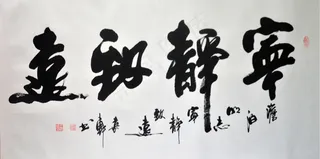 寧靜致遠
澹泊以明志寧靜致遠